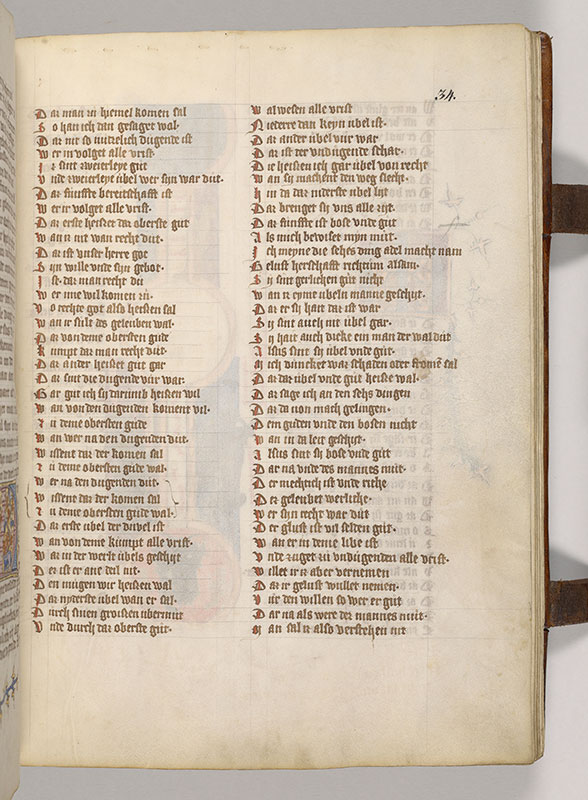 34.
Daz man in hiemel komen sal
So han ich dan gesaget wal·
Daz nie so nutzelich dugende ist
Wer in volget alle vrist·
Iz sint zweierleye gut
Vnde zweierleye ubel wer syn war dut·
Daz funffte bereitschafft ist
Wer ir volget alle vrist·
Daz erste heisset daz oberste gut
Wan iz nit wan recht dut·
Daz ist unser herre got
Syn wille unde syn gebot·
Ist daz man recht du
Wer ime wil komen zu·
Vo rechte got also heissen sal
Wan ir sult des gelenben wal·
Daz von deme obersten gude
Kumpt daz man recht dut·
Daz ander heisset gut gar
Daz sint die dugende vur war·
Gar gut ich sy darumb heissen wil
Wan von den dugenden koment vil·
Zu deme obersten gude
Wan wer na den dugenden dut·
Wissent daz der komen sal
Zu deme obersten gude wal·
Wer na den dugenden dut·
Wissene daz der komen sal
Zu deme obersten gude wal·
Daz erste ubel der duvel ist
Wan von deme kumpt alle vrist·
Waz in der werlt ubels geschyt
Dez ist er ane deil nit·
Den mugen wir heissen wal
Daz nyderste ubel wan er sal·
Durch sinen grossen ubermut
Vnde durch daz oberste gut·
Wal wesen alle vrist
Niederre dan keyn ubel ist·
Daz ander ubel vur war
Daz ist der undugende schar·
Die heissen ich gar ubel von recht
Wan sy machent den weg slecht·
Hin da daz niderste ubel lyt
Daz brenget sy uns alle zyt·
Daz funffte ist bose unde gut
Als mich bewiset myn mut·
Ich meyne die sehs ding adel macht nam
Gelust herschafft richtum alsam·
Sy sint gerlichen gut nicht
Wan iz eyme ubeln manne geschyt·
Daz er sy hait daz ist war
Sy sint auch nit ubel gar·
Sy hait auch dicke ein man der wal dut
Alsus sint sy ubel unde gut·
Mich duncket waz schaden oder fromen sal
Daz daz ubel unde gut heisse wal·
Daz sage ich an den sehs dingen
Daz da von mach gelingen·
Dem guden unde den bosen nicht
Wan in da leit geschyt·
Alsus sint sy bose unde gut
Dar na unde des mannes mut·
Der mechtich ist unde riche
Dez gelenbet werliche·
Wer syn recht war dut
Der glust ist vil selden gut·
Wan er in deme libe ist
Vnde zuget zu undugenden alle vrist·
Willet ir iz aber vernemen
Daz ir gelust wullet nemen·
Vur den willen so wer ez gut
Dar na als were der mannes mut·
Man sal iz also verstehen nit